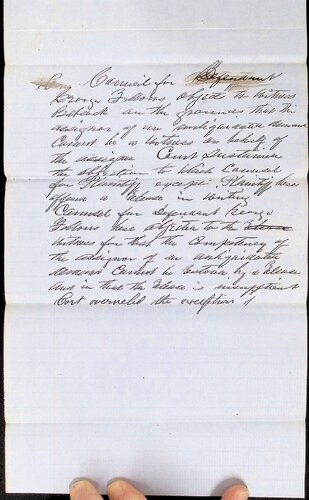 Council for Defendant
George Fellows object to Witness
Babcock on the grounds that the
assignor of an unliquidated demand
Cannot be a Witness on behalf of
the assignee Court Sustained
the objection to which Counsel
for Plaintiff except Plaintiff here
offered a release in writing
Counsel for Defendant George
Fellows here objected to the
Witness for that the Competency of
the assignor of an unliquidated
demand Cannot be restored by a release
and in that the release is insufficient
Court overruled the exception